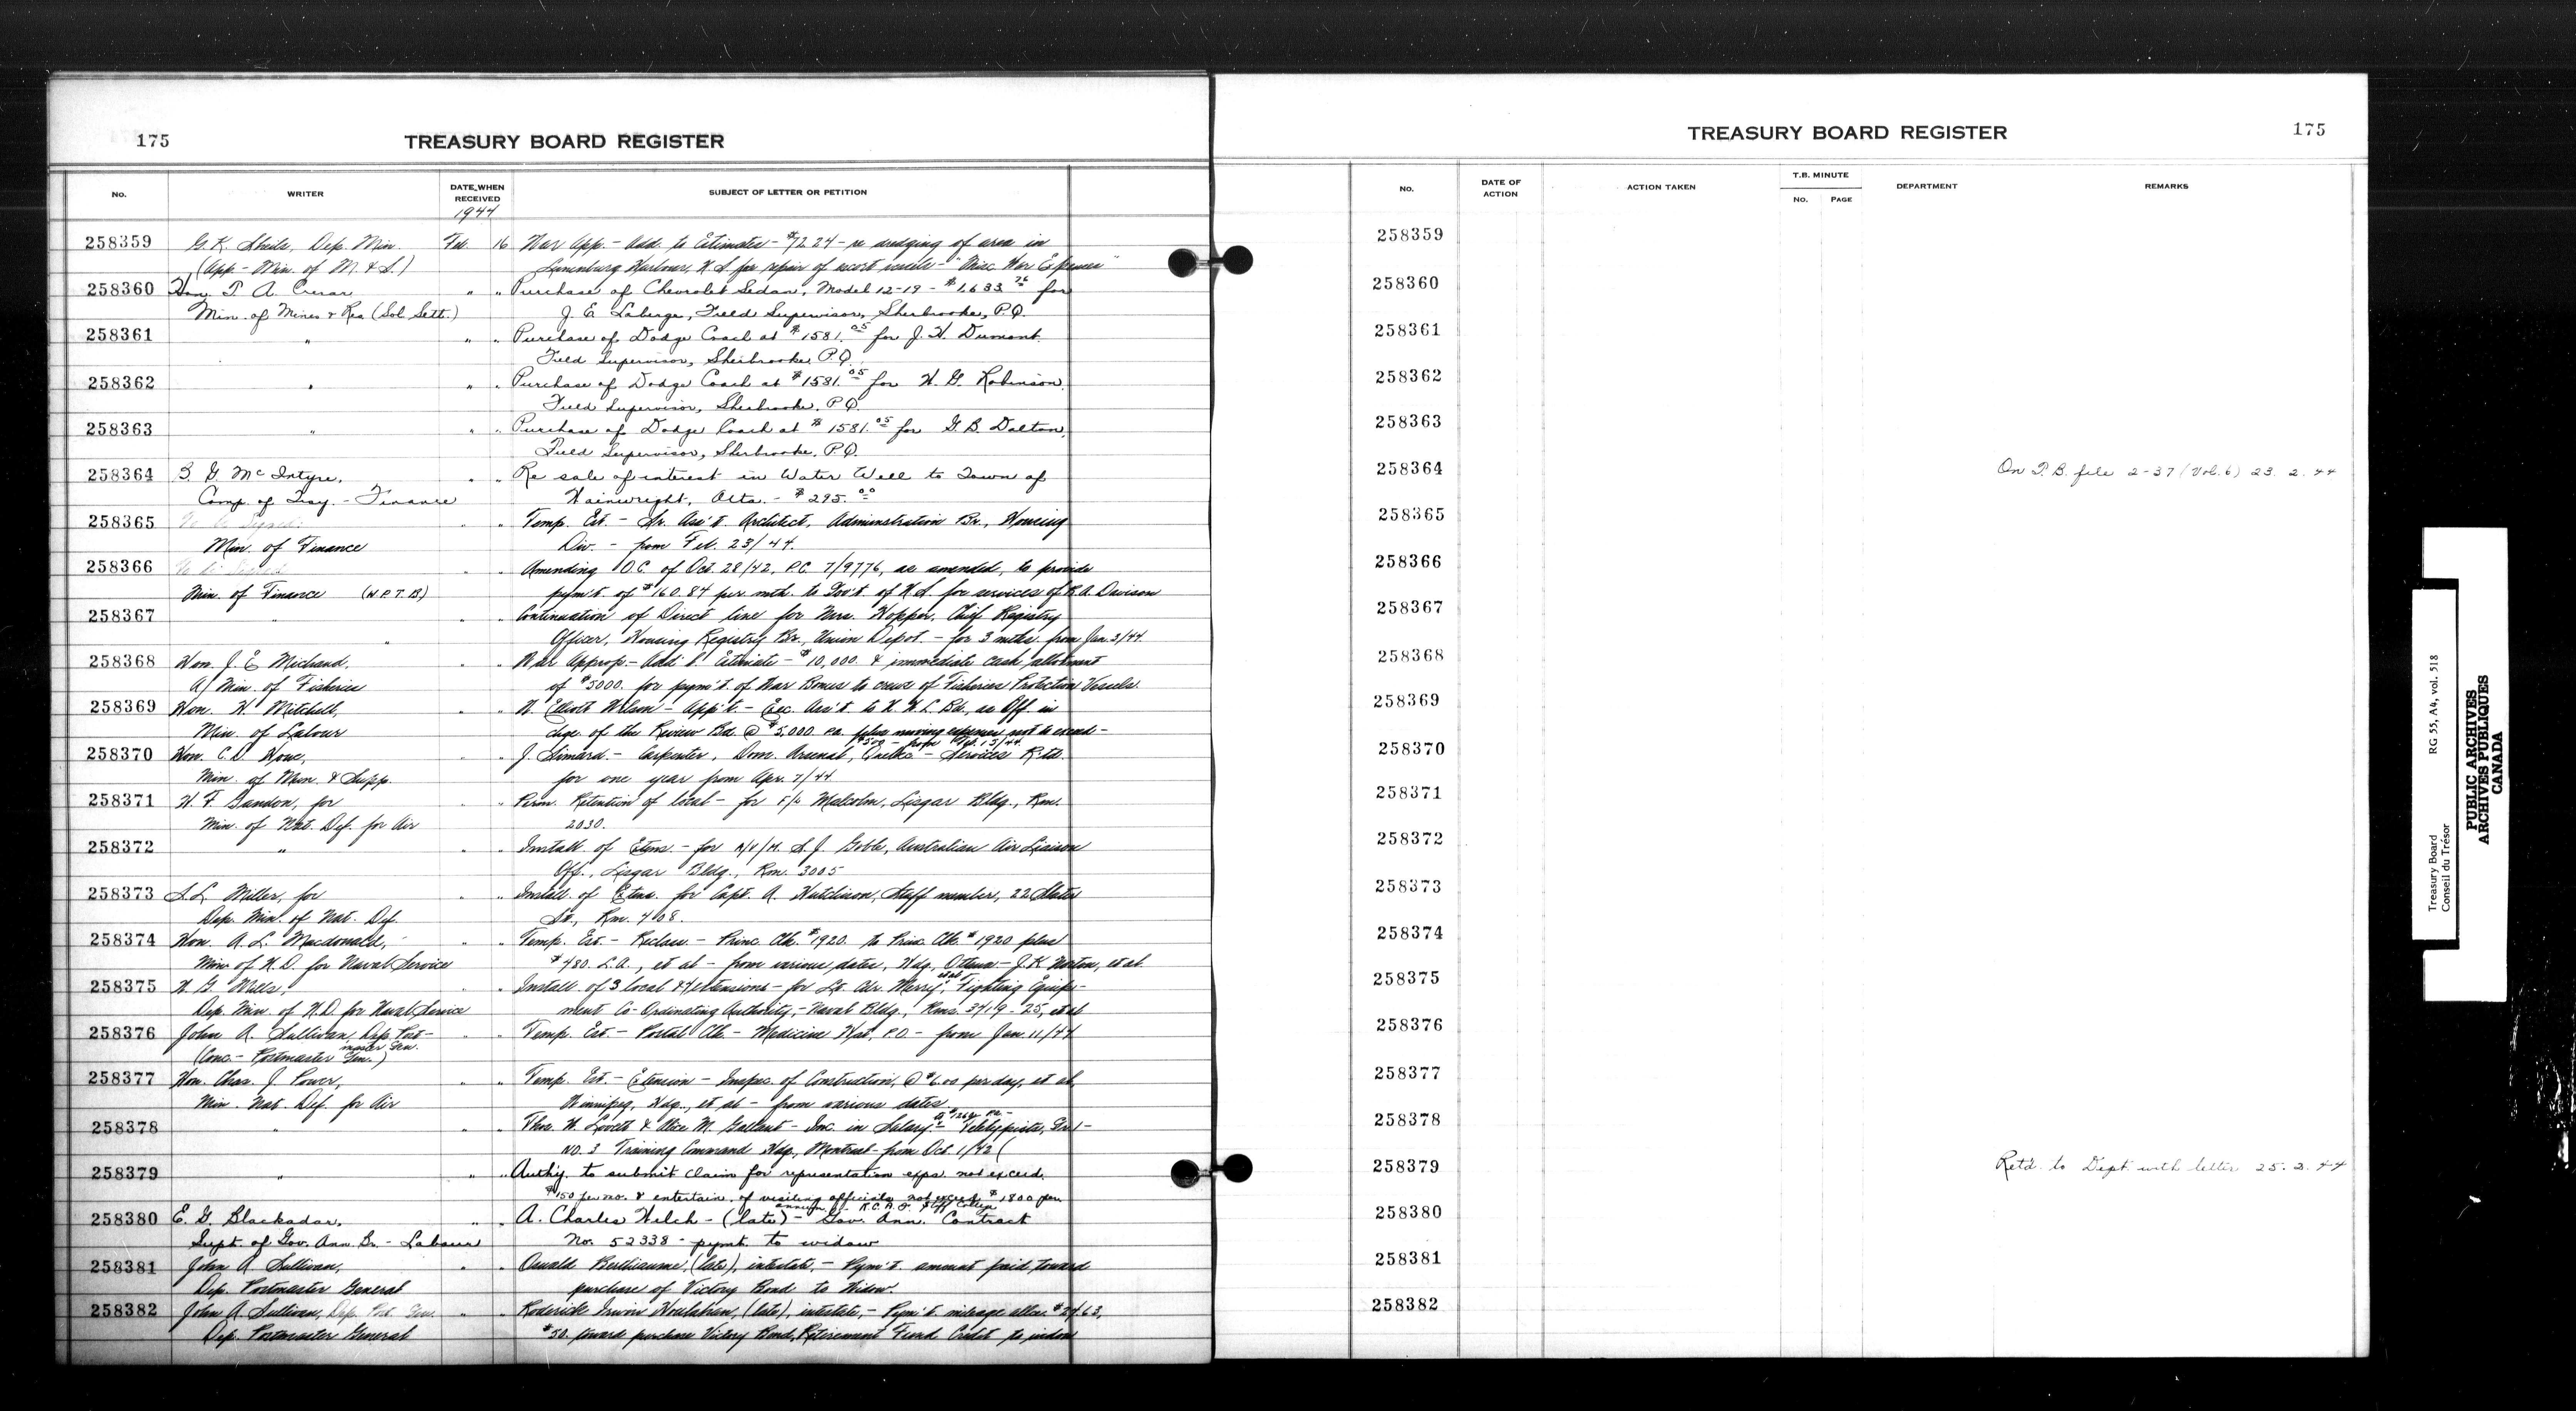 175
TREASURY BOARD REGISTER
No.
WRITER
DATE WHEN RECEIVED
1944
SUBJECT OF LETTER OR PETITION
258359 G. K. Sheils, Dep. Min. Feb. 16 War App. - Add. to Estimates - $7224 - re dredging of area in
(App - Min. of M. & S.) Lunenburg Harbour, N.S. for repair of escort vessels - "Misc War Expenses"
258360 Hon. T. A. Crerar " " Purchase of Chevrolet Sedan, Model 12-19 - $1633. for
Min. of Mines & Res (Sol. Sett.) J. E. Laberge, Field Supervisor, Sherbrooke, P.Q.
258361 " " " Purchase of Dodge Coach at $1581.05 for J. H. Dumont
Field Supervisor, Sherbrooke P.Q.
258362 " " " Purchase of Dodge Coach at $1581.05 for H. G. Robinson,
Field Supervisor, Sherbrooke, P.Q.
258363 " " " Purchase of Dodge Coach at $1581.05 for G. B. Dalton,
Field Supervisor, Sherbrooke, P.Q.
258364 B. G. McIntyre, " " Re sale of interest in Water Well to Town of
Comp. of Tsy. - Finance Wainwright, Alta. - $295.00
258365 " " Temp. Est. - Sr. Ass't Architect, Administration Br., Housing
Min. of Finance Div. - from Feb. 23/44.
258366 " " Amending O.C. of Oct. 28/42, P.C. 7/9776, as amended, to provide
Min. of Finance (W.P.T.B.) pym't. of $160.84 per mth. to Gov't. of N.S. for services of R. A. Davison
258367 " " " Continuation of Direct line for Mrs. Hopper, Chief Registry
" Officer, Housing Registry Br., Union Depot. - for 3 mths. from Jan. 3/44.
258368 Hon. J. E. Michaud, " " War Approp. - Add'l Estimate - $10,000. & immediate cash allotment
A/Min. of Fisheries of $5000. for paym't. of War Bonus to crews of Fisheries Protection Vessels.
258369 Hon. H. Mitchell, " " N. Elliott Wilson - App't. - Exec. Ass't. to N.W.L. Bd., as Off. in
Min. of Labour chge. of the Review Bd. @ $5,000. p.a. plus moving expenses not to exceed -
$500 - from Feb. 15/44.
258370 Hon. C. D. Howe, " " J. Simard. - Carpenter, Dom. Arsenal, Quebec - Services Retd.
Min. of Mun. & Supp. for one year from Apr. 7/44
258371 H. F. Gandon, for " " Perm. Retention of local - for F/L Malcolm, Lisgar Bldg., Rm.
Min. of Nat. Def. for Air 2030.
258372 " " " Install. of Extens. - for A/V/M. S. J. Goble, Australian Air Liaison
Off., Lisgar Bldg., Rm. 3005
258373 S. L. Miller, for " " Install. of Extens. for Capt. A. Hutchison, Staff member, 22 Slater
Dep. Min. of Nat. Def. St., Rm. 408.
258374 Hon. A. L. Macdonald, " " Temp. Est. - Reclass. - Princ. Clk. $1920. to Princ. Clk. $1920 plus
Min. of N.D. for Naval Service $480. L.A., et al - from various dates, Hdq., Ottawa - J. K. Norton, et al.
258375 W. G. Mills, " " Install. of 3 local & 7 extensions - for Lt. Cdr. Merry, et al, Fighting Equip-
Dep. Min. of N.D. for Naval Service ment Co-Ordinating Authority, Naval Bldg., Rms. 3419-25, et al
258376 John A. Sullivan, Dep. Post- " " Temp. Est. - Postal Clk. - Medicine Hat, P.O. - from Jan. 11/44
master Gen.
(Conc. - Postmaster Gen.)
258377 Hon. Chas. J. Power, " " Temp. Est. - Extension - Inspec. of Construction, @ $6.00 per day, et al,
Min. Nat. Def. for Air Winnipeg, Hdq., et al - from various dates.
258378 " " " Thos. W. Lovett & Alice M. Gallant - Inc. in Salary - @ $1260. p.a. - Teletypists, Gr. 1 -
No. 3 Training Command Hdq., Montreal from Oct. 1/42
258379 " " " Auth'y. to submit claim for representation exps. not exceed.
$150 per mo. & entertain. of visiting officials not exceed. $1800 per
annum for R.C.A.F. Staff College
258380 E. G. Blackadar, " " A. Charles Welch - (late) - Gov. Ann. Contract
Supt. of Gov. Ann. Br. - Labour No. 52338 - pymt. to widow
258381 John A. Sullivan, " " Oswald Berthiaume, (late), intestate, - Pym't. amount paid toward
Dep. Postmaster General purchase of Victory Bond to Widow.
258382 John A. Sullivan, Dep. Post. Gen. " " Roderick Irwin Houlahan, (late), intestate, - Pym't. mileage allce. $24.63,
Dep. Postmaster General $50. toward purchase Victory Bond, Retirement Fund Credit to widow
TREASURY BOARD REGISTER
175
No.
DATE OF ACTION
ACTION TAKEN
T.B. MINUTE
No.
PAGE
DEPARTMENT
REMARKS
258359
258360
258361
258362
258363
258364 On T.B. file 2-37 (Vol. 6) 23. 2. 44
258365
258366
258367
258368
258369
258370
258371
258372
258373
258374
258375
258376
258377
258378
258379 Ret'd. to Dept. with letter 25. 2. 44
258380
258381
258382
Treasury Board RG 55, A4, vol. 518
Conseil du Trésor
PUBLIC ARCHIVES
ARCHIVES PUBLIQUES
CANADA